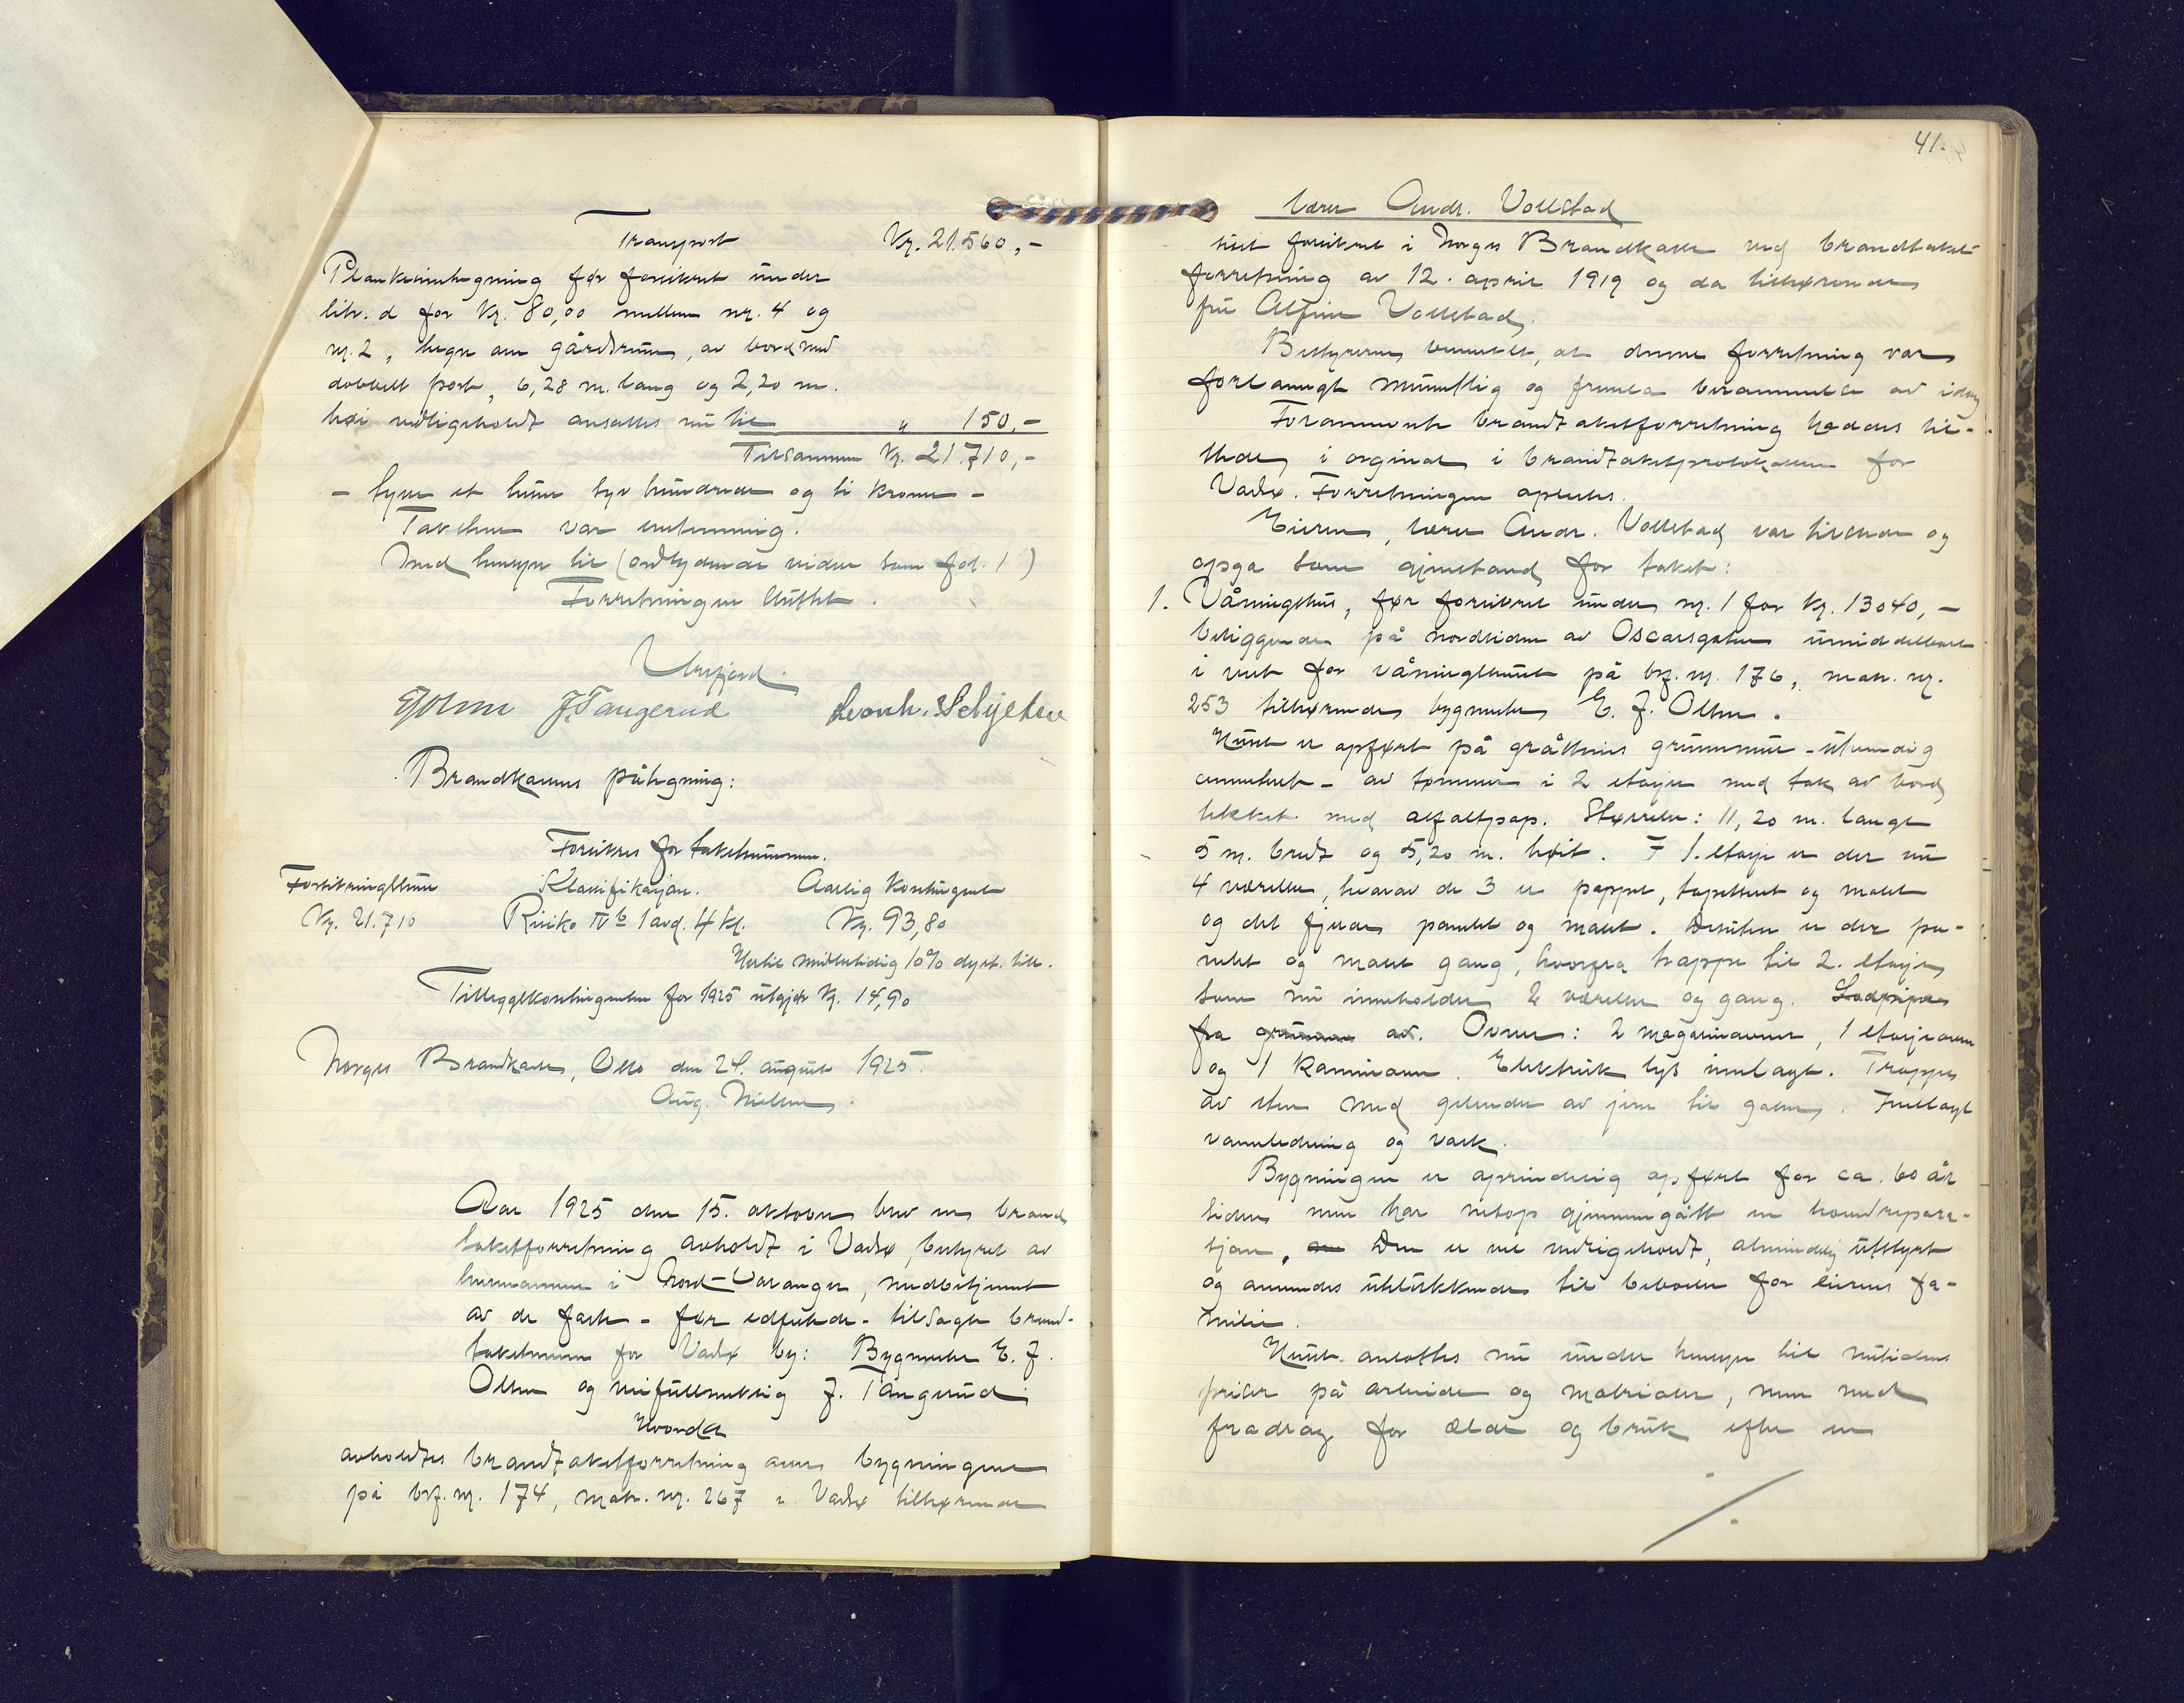 Transport Kr. 21.560,-
Plankeinnhegning før forsikret under
litr. d for kr. 80,00 mellem nr. 4 og
nr. 2, hegn om gårdsrum, av bord med
dobbelt port, 6,28 m. lang og 2,20 m.
høi vedligeholdt ansattes nu til " 150,-
Tilsammen Kr. 21.710,-
- tyve et tusen syv hundrede og ti kroner -
Taksten var enstemmig.
Med hensyn til (ordlydende videre som fol. 1)
Forretningen sluttet.
Unsfjord.
EJOlsen J. Tangerud Leonh. Schjelse
Brandkassens påtegning:
Forsikres for takstsummen.
Forsikringssum Klassifikasjon. Aarlig kontingent
Kr. 21.710 Risiko IV b 1 avd. 4 kl. Kr. 93,80
Hertil midlertidig 10% dyrt. till.
Tilleggskontingenten for 1925 utgjør kr. 14,90
Norges Brandkasse, Oslo den 24. august 1925.
Aug. Nielsen.
Aar 1925 den 15. oktober blev en brand
takstforretning avholdt i Vadsø, bestyret av
lensmannen i Nord-Varanger, medbetjent
av de faste - før edfestede - tilsagte brand-
takstmenn for Vadsø by: Bygmester E. J.
Olsen og
J. Tangerud
Hvorda
avholdtes brandtakstforretning over bygningene
på brf. nr. 174, matr. nr. 267 i Vadsø tilhørende
41.
lærer Andr. Vollstad
sist forsikret i Norges Brandkasse ved brandtakst-
forretning av 12. april 1919 og da tilhørende
fru Alfine Vollstad.
Bestyreren bemerket, at denne forretning var
forlangt mundtlig og fremla berammelse av idag
Forannevnte brandtakstforretning haddes til-
stede i orginal i brandtakstprotokollen for
Vadsø. Forretningen oplestes.
Eieren, lærer Andr. Vollstad var tilstede og
opga som gjenstand for takst:
1. Våningshus, før forsikret under nr. 1 for kr. 13040,-
beliggende på nordsiden av Oscarsgaten umiddelbart
i vest for våningshuset på brf. nr. 176, matr. nr.
253 tilhørende bygmester E. J. Olsen.
Huset er opført på gråstens grunnmur - utvendig
cementert - av tømmer i 2 etager med tak av bord
tekket med asfaltpap. Størrelse: 11,20 m. langt
5 m. bredt og 5,20 m. høit. I 1. etage er der nu
4 værelser, hvorav de 3 er pappet, tapetsert og malet
og det fjerde panelet og malet. Desuten er der pa-
nelet og malet gang, hvorfra trappe til 2. etage,
som nu inneholder 2 værelser og gang. Lodpipe
fra grunnen av. Ovner: 2 magasinovner, 1 etageovn
og 1 kaminovn. Elektrisk lys innlagt. Trappe
av sten med gelender av jern til gaten. Innlagt
vannledning og vask.
Bygningen er oprindelig opført for ca. 60 år
siden men har netop gjennemgått en hovedrepara-
sjon. Den er vel vedligeholdt, almindelig utstyrt
og anvendes utelukkende til beboelse for eierens fa-
milie.
Huset ansattes nu under hensyn til nutidens
priser på arbeide og matrialer, men med
fradrag for ælde og bruk efter en
./.